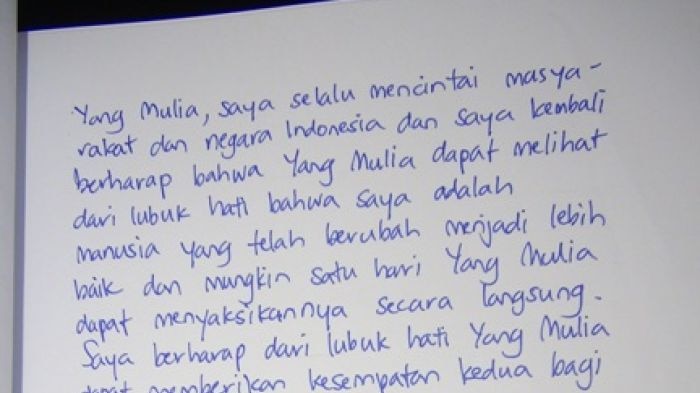 Yang Mulia, saya selalu mencintai masya-
rakat dan negara Indonesia dan saya kembali
berharap bahwa Yang Mulia dapat melihat
dari lubuk hati bahwa saya adalah
manusia yang telah berubah menjadi lebih
baik dan mungkin satu hari Yang Mulia
dapat menyaksikannya secara langsung.
Saya berharap dari lubuk hati Yang Mulia
dapat memberikan kesempatan kedua bagi